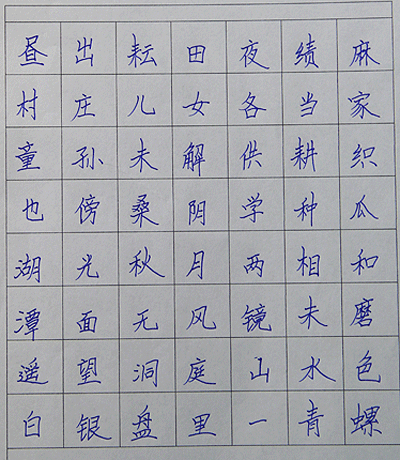 昼出耘田夜绩麻
村庄儿女各当家
童孙未解供耕织
也傍桑阴学种瓜
湖光秋月两相和
潭面无风镜未磨
遥望洞庭山水色
白银盘里一青螺